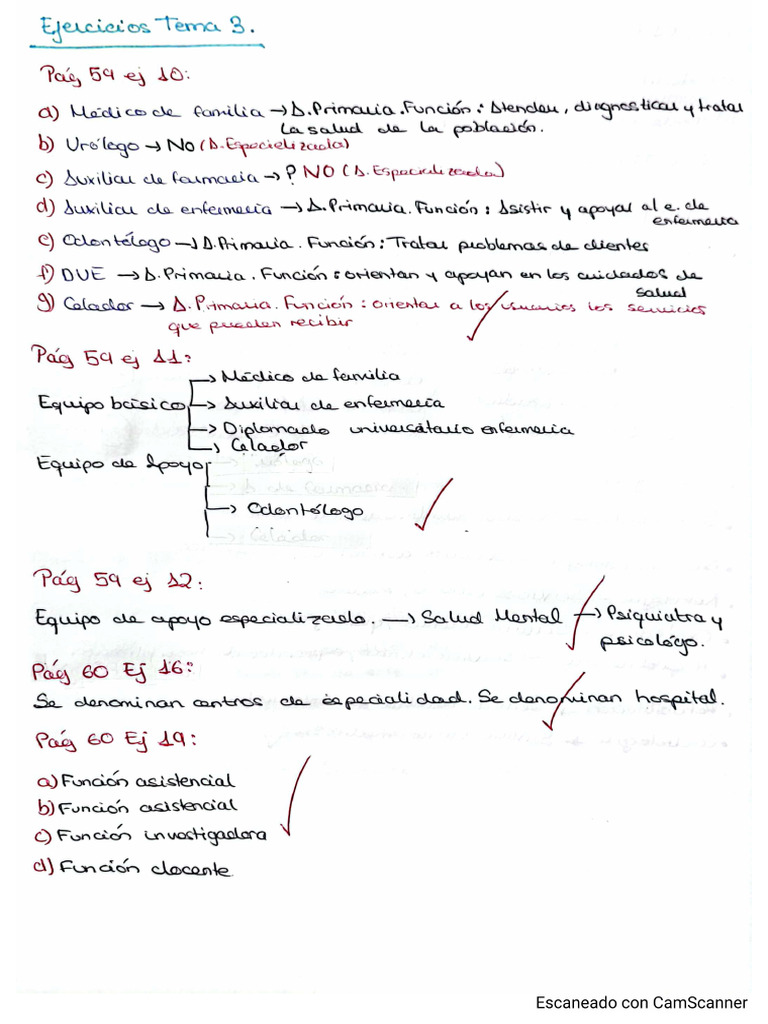 Ejercicios Tema 3.
Pág 59 ej 10:
a) Médico de familia → A.Primaria. Función: Atender, diagnosticar y tratar
la salud de la población.
b) Urólogo → No (A. Especializada)
c) Auxiliar de farmacia → ? NO (A. Especializada)
d) Auxiliar de enfermería → A.Primaria. Función: Asistir y apoyar al e. de
enfermería
e) Odontólogo → A.Primaria. Función: Tratar problemas de dientes
f) DUE → A.Primaria. Función: orientan y apoyan en los cuidados de
salud
g) Celador → A. Primaria. Función: orientar a los usuarios los servicios
que pueden recibir
Pág 59 ej 11:
→ Médico de familia
Equipo básico → Auxiliar de enfermería
→ Diplomado universitario enfermería
→ Celador
Equipo de Apoyo
→ Odontólogo
Celador
Pág 59 ej 12:
Equipo de apoyo especializado. → Salud Mental → Psiquiatra y
psicológo.
Pág 60 Ej 16:
Se denominan centros de especialidad. Se denominan hospital.
Pág 60 Ej 19:
a) Función asistencial
b) Función asistencial
c) Función investigadora
d) Función docente
Escaneado con CamScanner